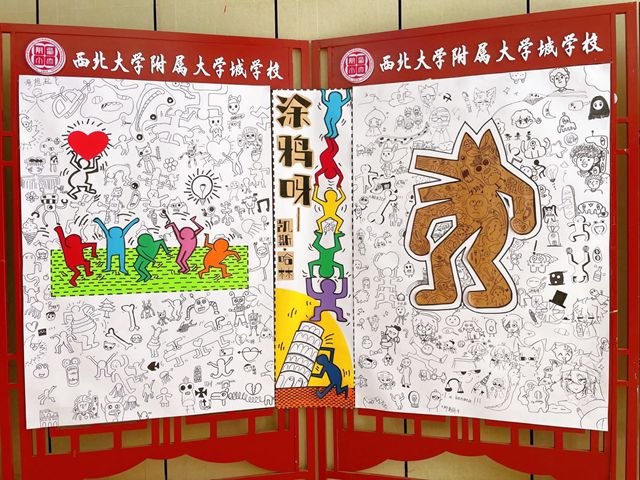 西北大学附属大学城学校
西北大学附属大学城学校
涂鸦呀—
凯斯·哈林